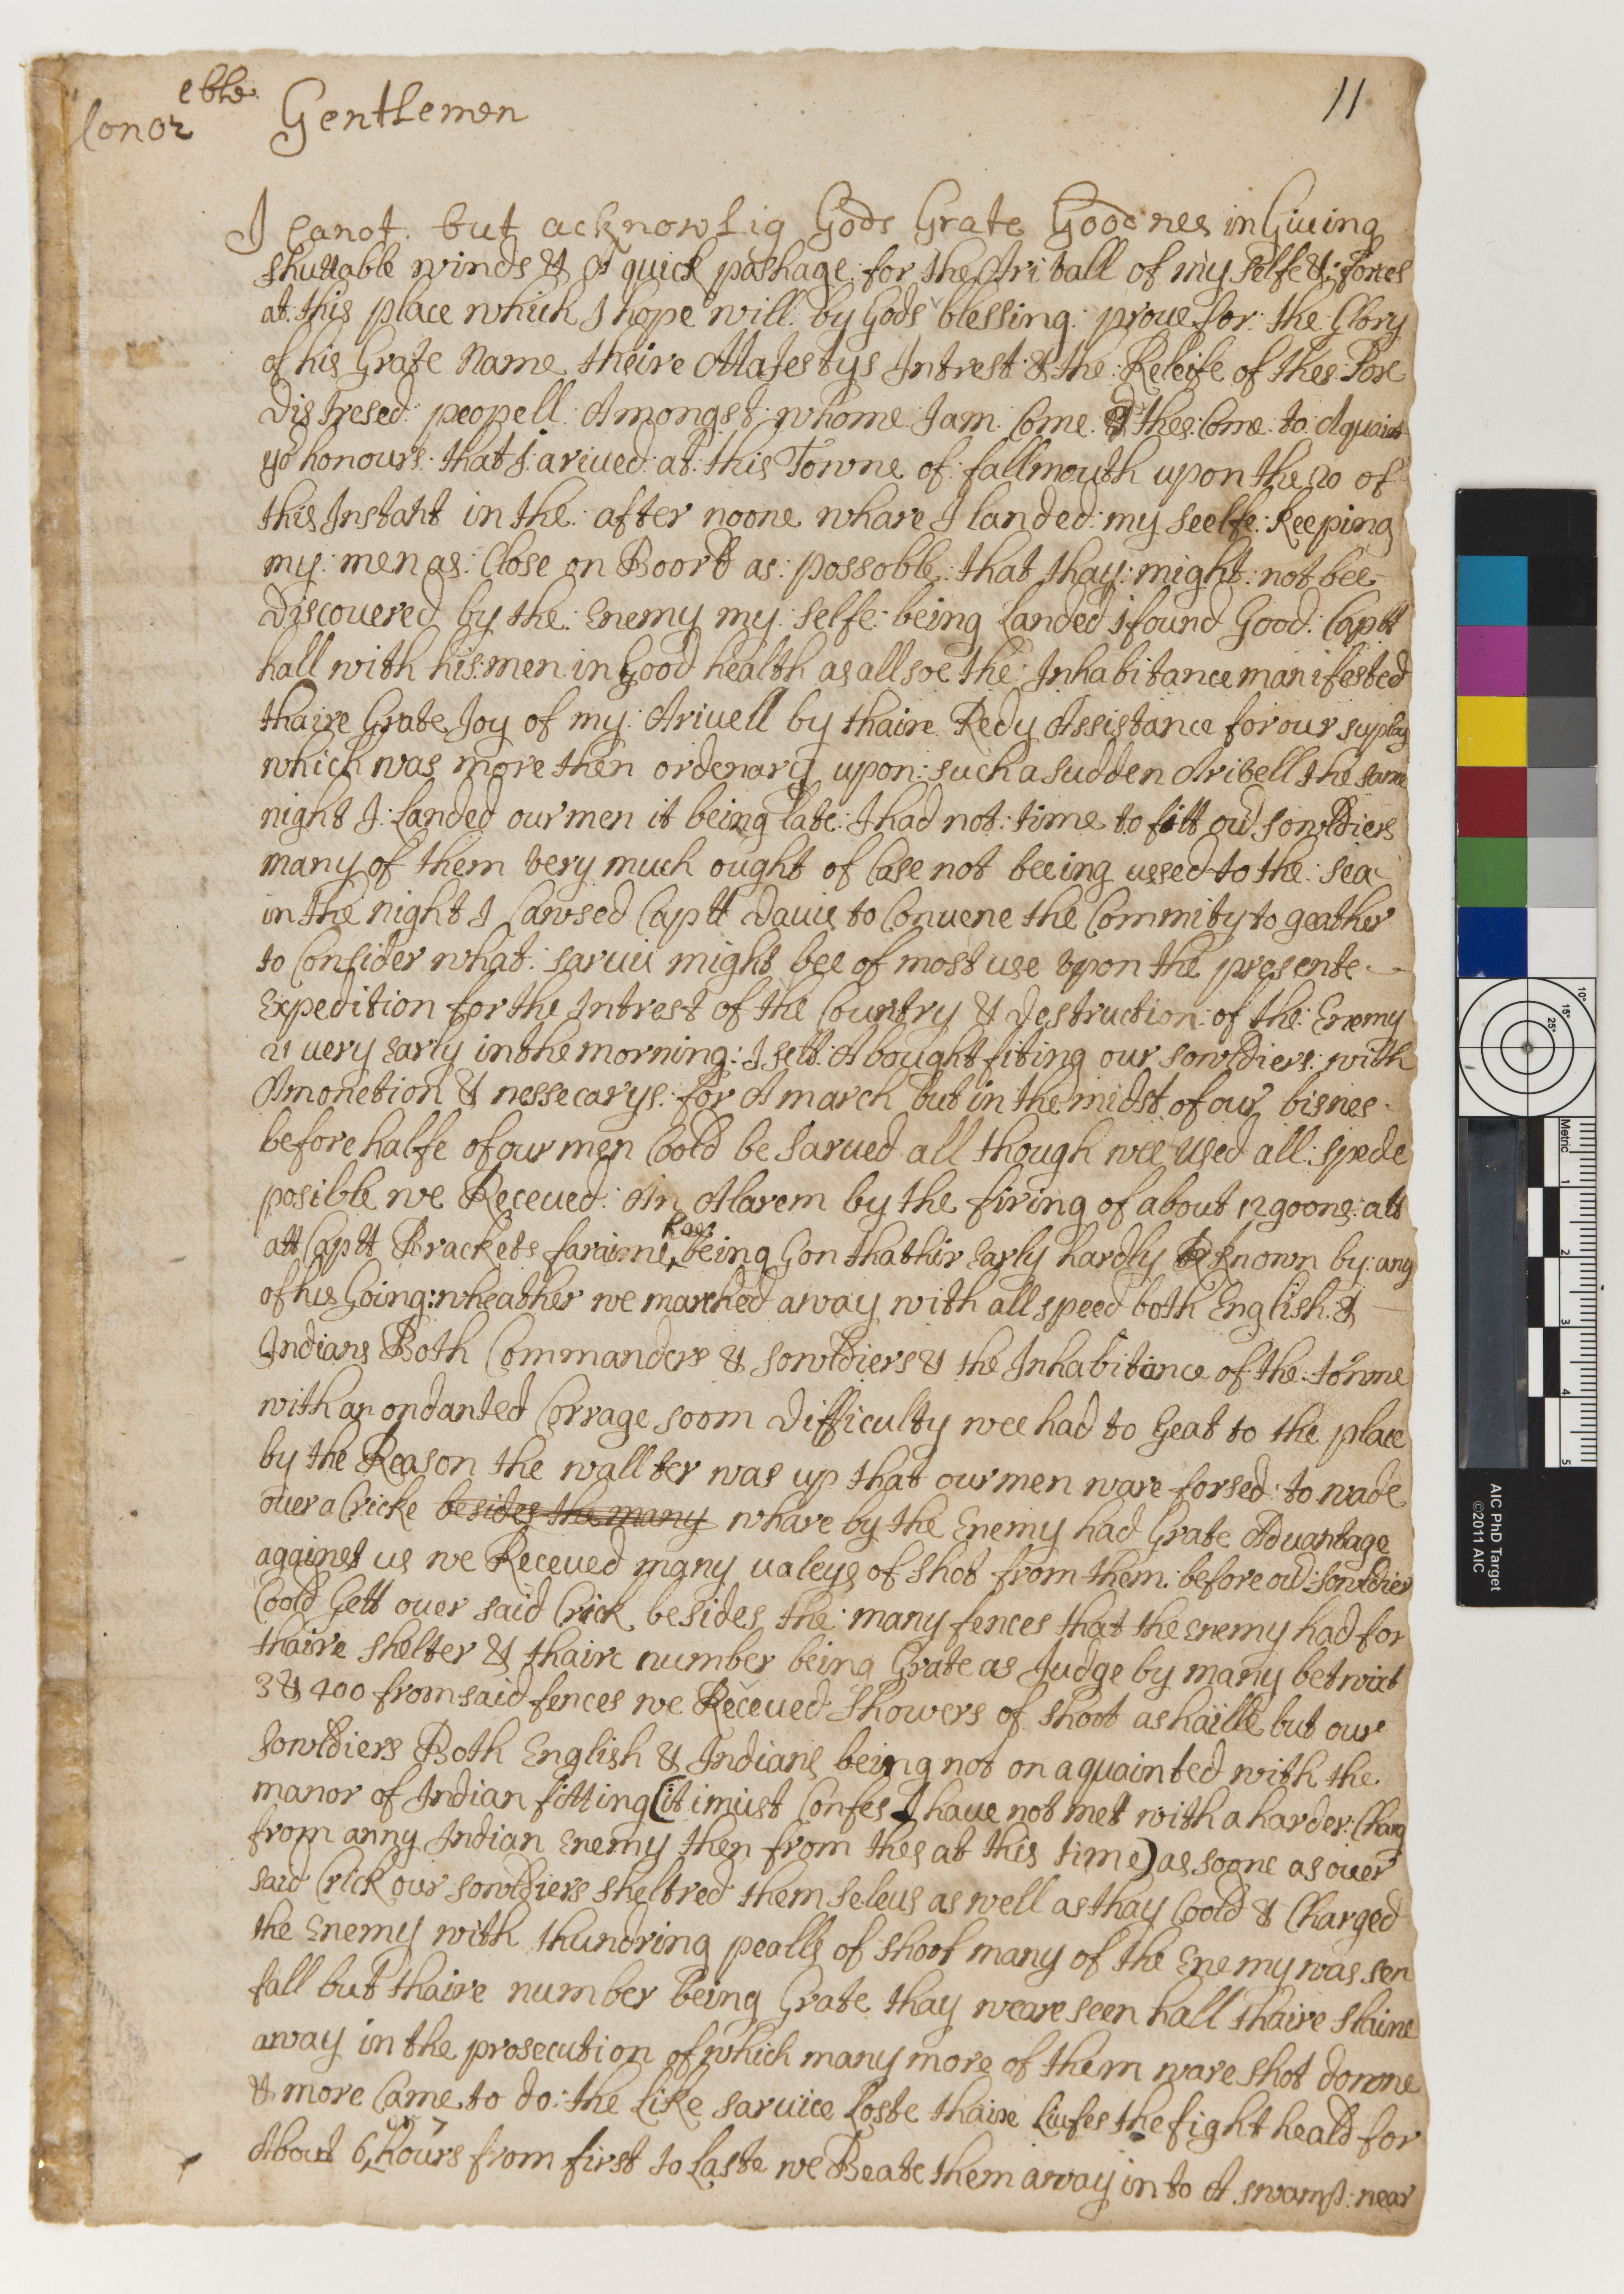 onor eble Gentlemen
11
I Canot but acknowlig Gods Grate Goodnes in Giuing
shuttable winds & A quick pashage for the Ariball of my selfe & forces
at this place which I hope will by Gods blessing proue for the Glory
of his Grate Name theire Majestys Intrest & the Releife of thes Pore
Distresed peopell Amongst whome I am Come thes Come to Aquaint
yor honours that I ariued at this Towne of fallmouth upon the 20 of
this Instant in the after noone whare I landed my seelfe Keeping
my men as Close on Boord as possoble that thay might not bee
Discouered by the Enemy my selfe being Landed I found Good Captt
hall with his men in Good health as allsoe the Inhabitance manifested
thaire Grate Joy of my Ariuell by thaire Redy Assistance for our suplay
which was more then ordenary upon such a sudden Aribell the same
night I Landed our men it being late I had not time to fitt our sowldiers
many of them very much ought of Case not beeing ussed to the sea
in the night I Cawsed Captt Dauis to Conuene the Commity to geather
to Consider what saruis might bee of most use upon the presente
Expedition for the Intrest of the Country & Destruction of the Enemy
21 uery Early in the morning I sett A bought fiting our sowldiers with
Amonetion & nessecarys for A march but in the midst of our bisnes
before halfe of our men Coold be Sarued all though wee used all spede
posible we Receued An Alarem by the firing of about 12 goons att
att Captt Brackets faraime being Gon thathir Early hardly Known by any
of his Going wheather we marched away with all speed both English &
Indians Both Commanders & sowldiers & the Inhabitance of the towne
with an ondanted Corrage soom Difficulty wee had to Geat to the place
by the Reason the wallter was up that our men ware forsed to wade
ouer a Cricke besides the many whare by the Enemy had Grate Aduantage
against us we Receued many ualeys of shot from them before our sowldier
Coold Gett ouer said Crick besides the many fences that the Enemy had for
thaire shelter & thaire number being Grate as Judge by many betwixt
3 & 400 from said fences we Receued Showers of shoot as haille but our
Sowldiers Both English & Indians being not on aquainted with the
manor of Indian fitting (it i must Confes I haue not mett with a harder Charg
from anny Indian Enemy then from thes at this time) as soone as ouer
said Crick our sowldiers sheltred them seleus as well as thay Coold & Charged
the Enemy with thundring pealls of shoot many of the Enemy was sen
fall but thaire number being Grate thay weare seen hall thaire slaine
away in the prosecution of which many more of them ware shot downe
& more Came to do the Like saruice Loste thaire Liufes the fight heald for
About 6 or 7 hours from first to Laste we Beate them away in to A swamp near